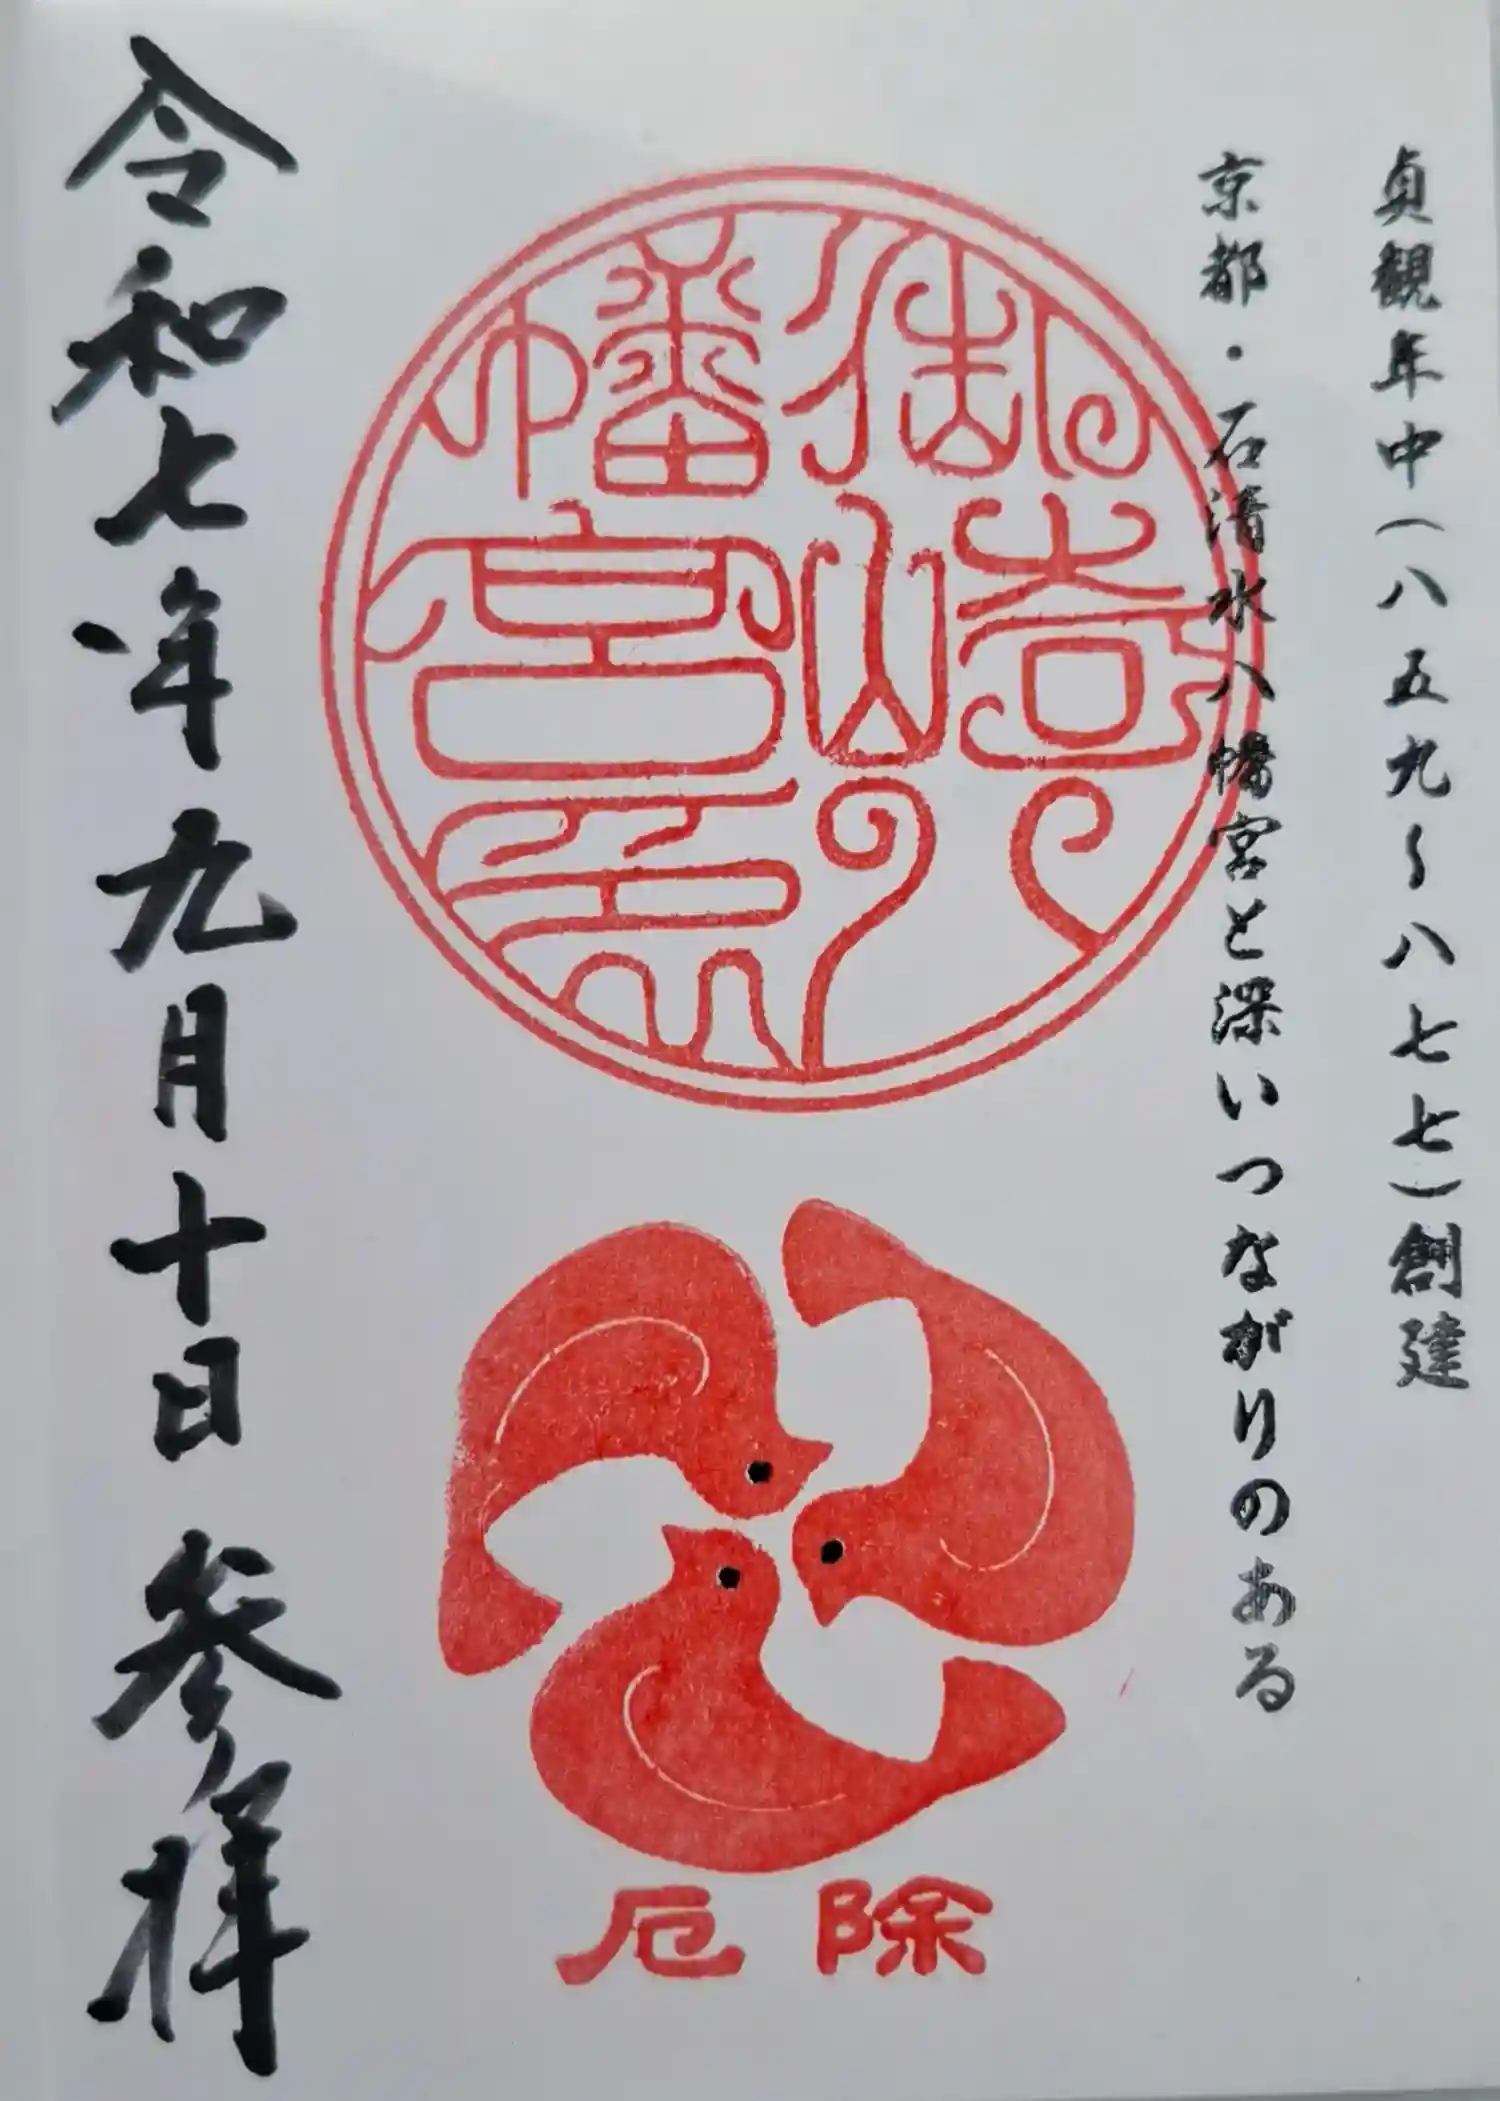 貞観年中(八五九〜八七七)創建
京都・石清水八幡宮と深いつながりのある
御崎八幡宮印
厄除
令和七年九月十日 参拝